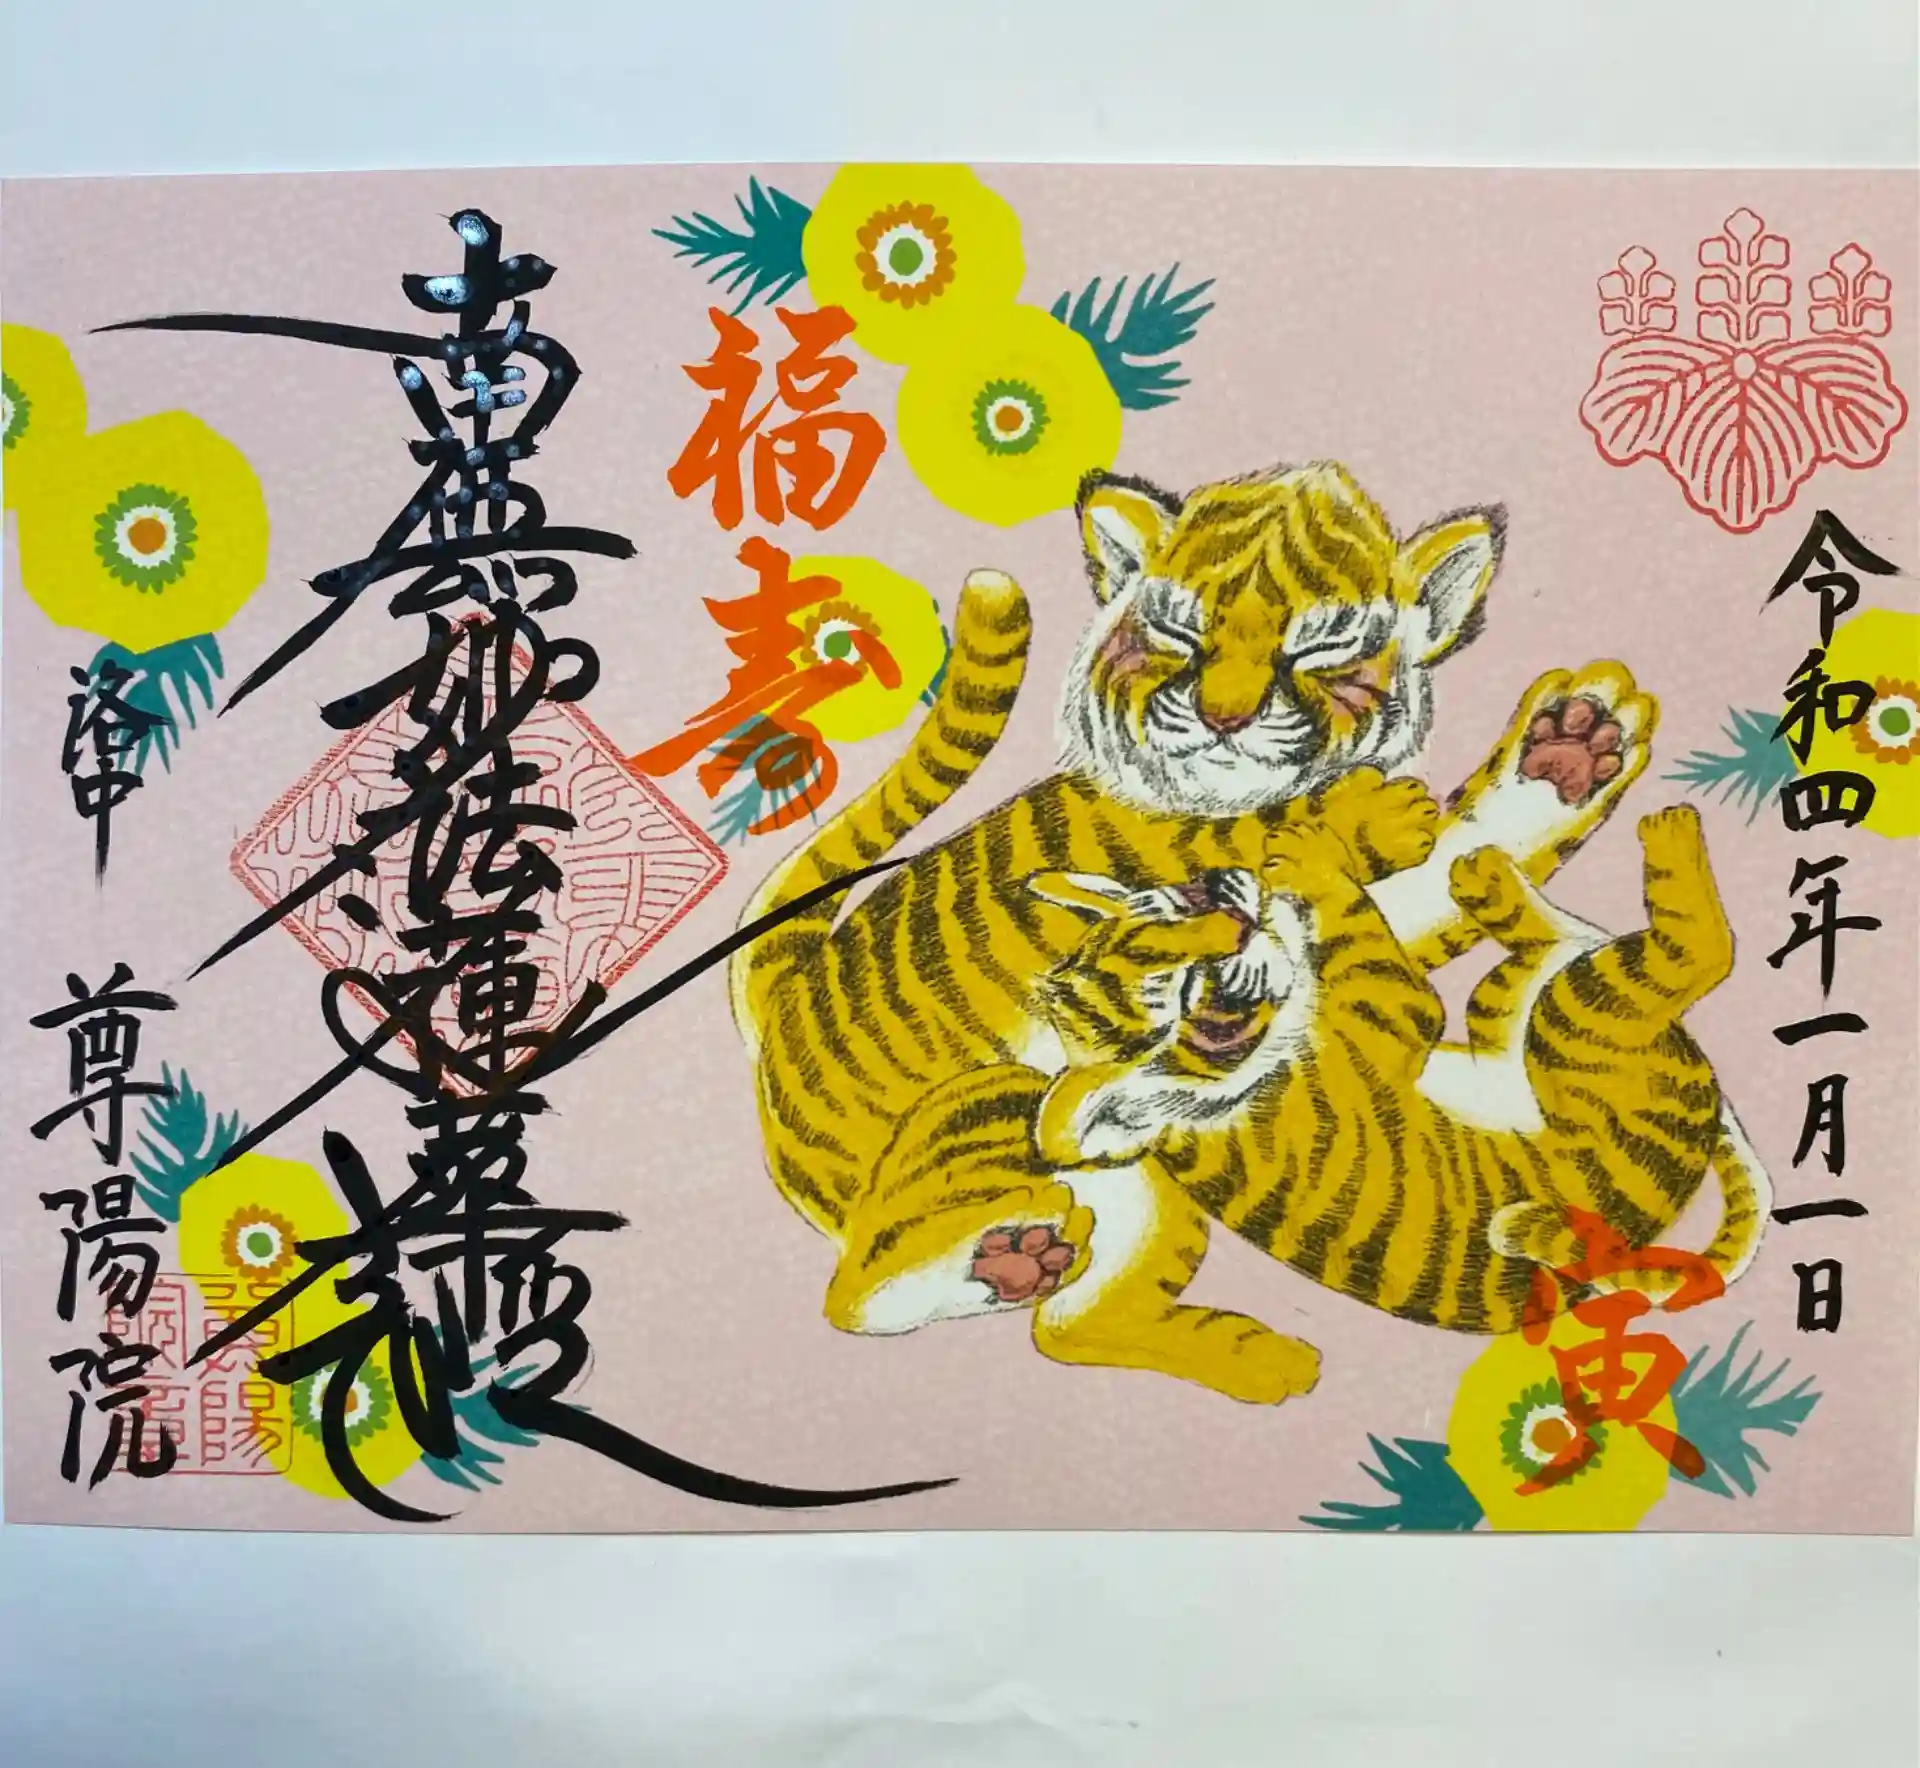 令和四年一月一日
寅
福寿
南無妙法蓮華経
洛中
尊陽院